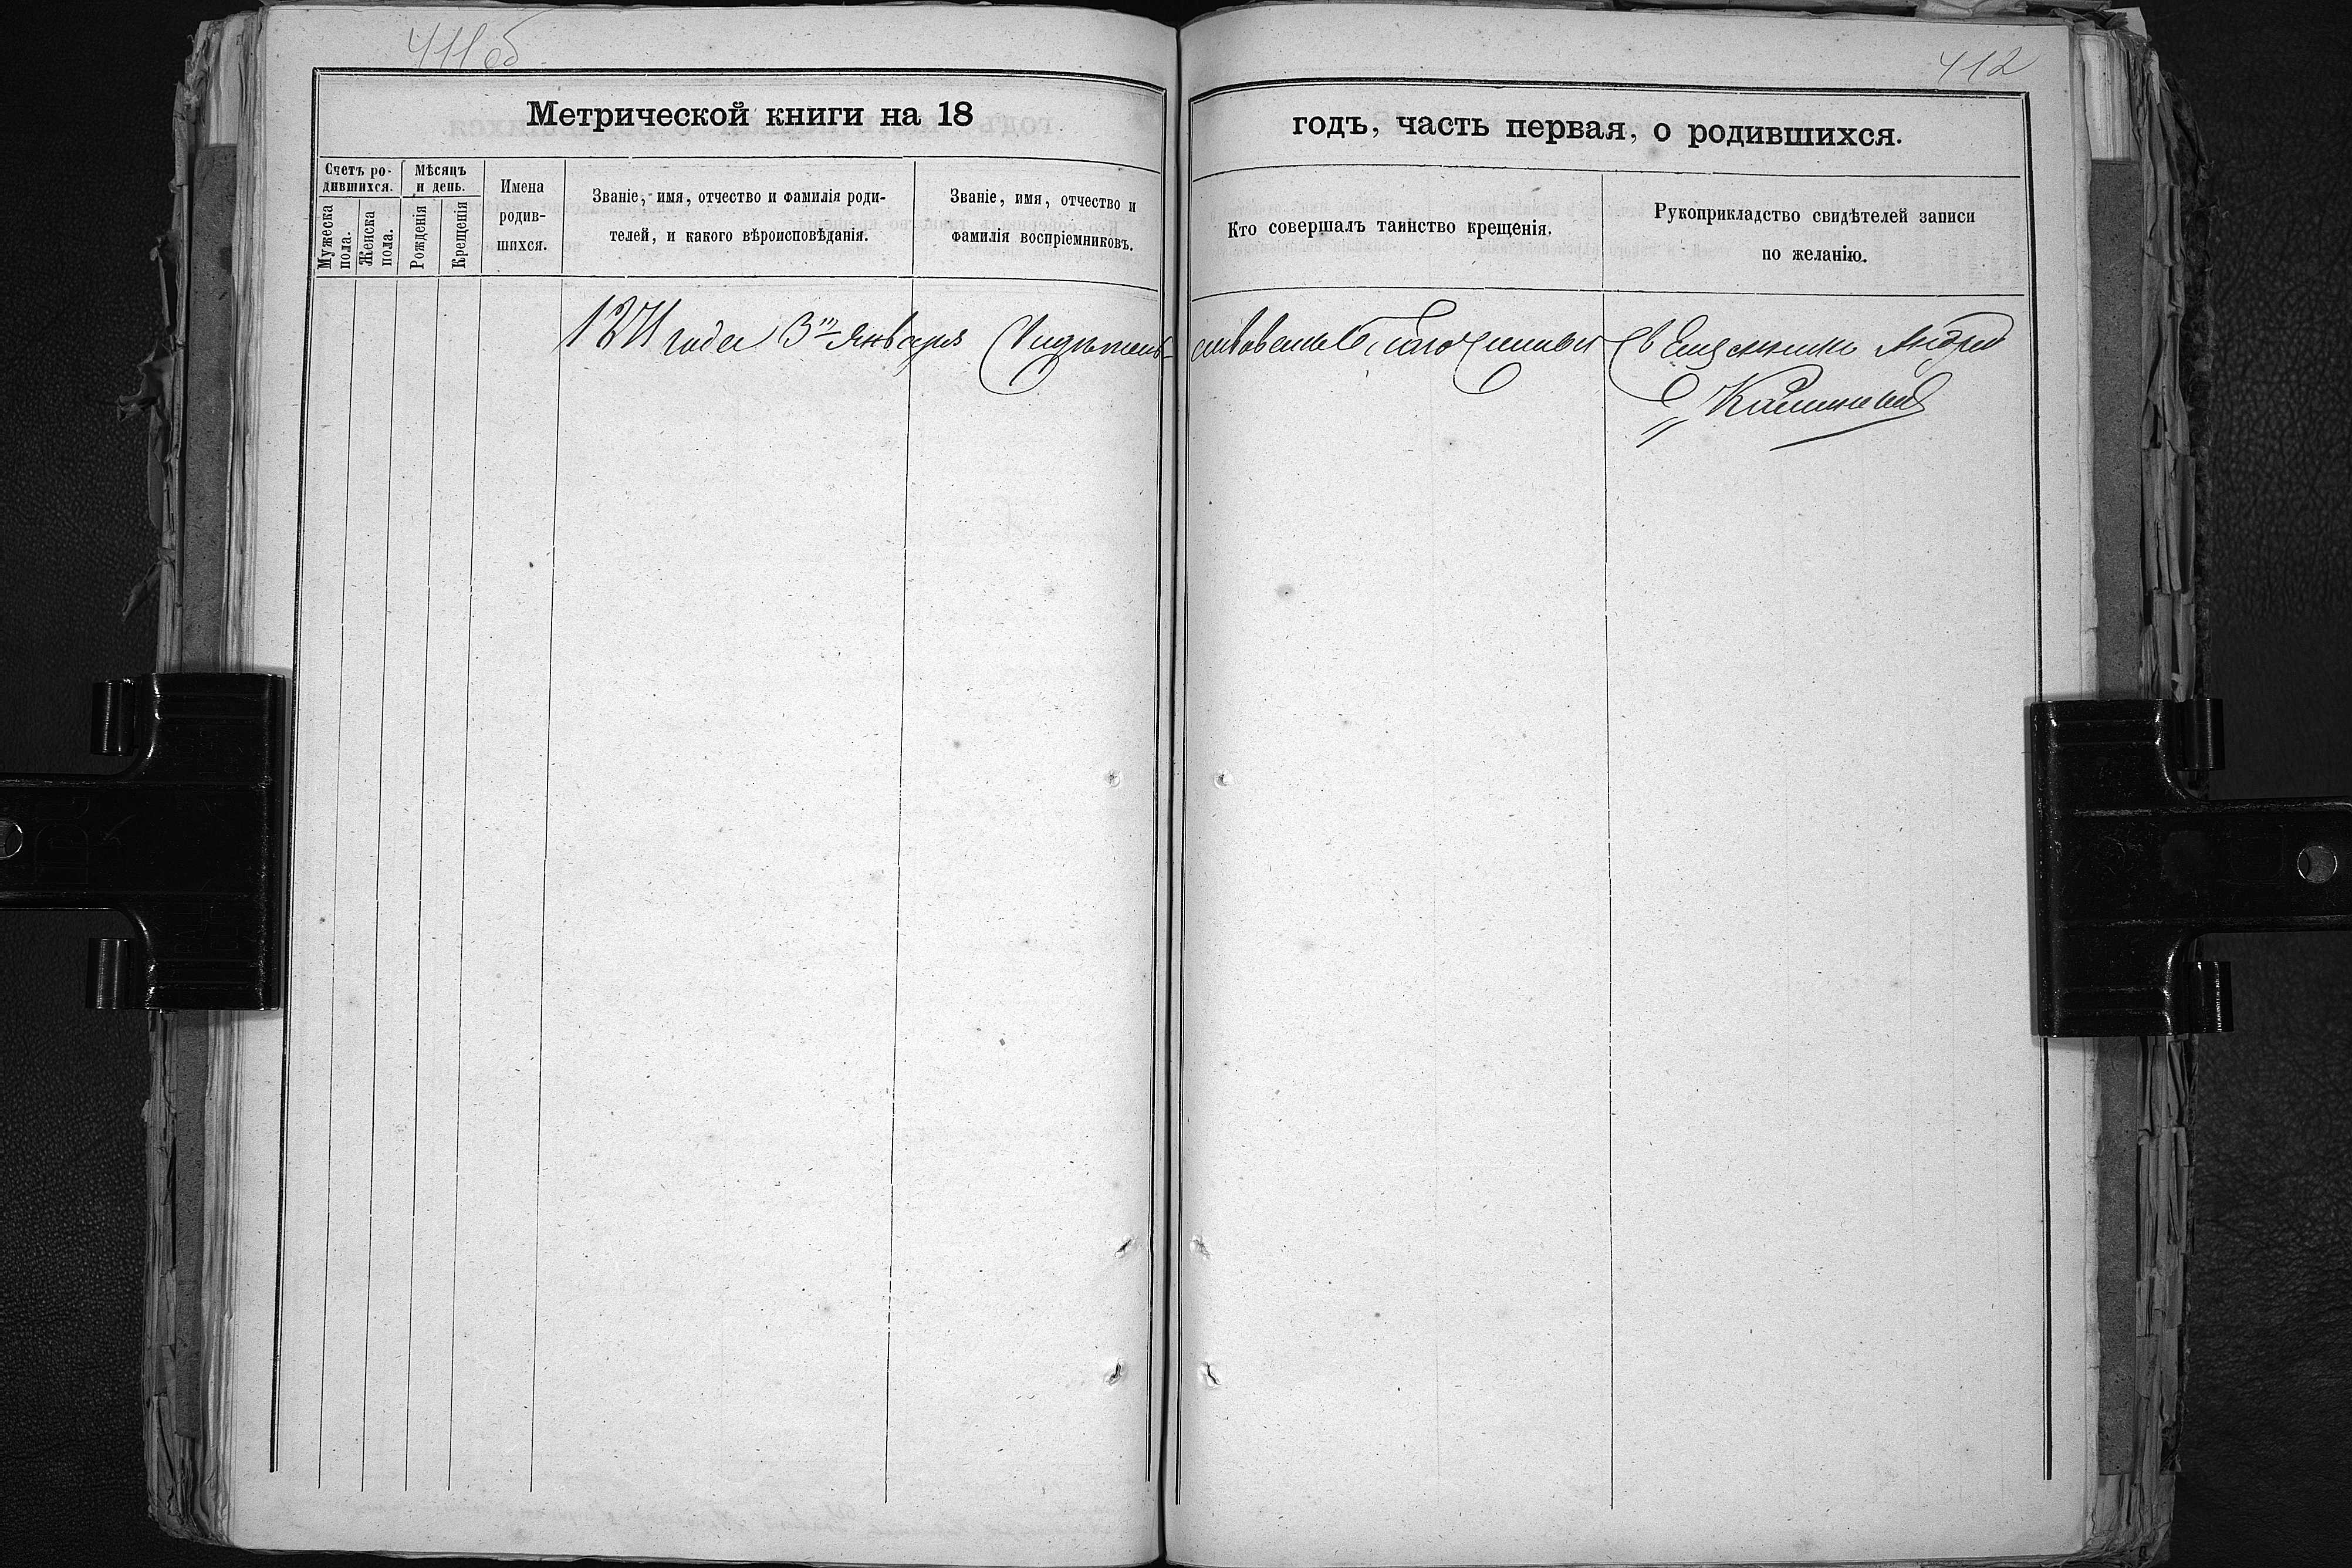 411об
412
Метрической книги на 18
годъ, часть первая, о родившихся.
Счетъ ро-
дившихся.
Мѣсяцъ
и день.
Мужеска
пола.
Женска
пола.
Рожденія
Крещенія
Имена
родив-
шихся.
Званіе, имя, отчество и фамилія роди-
телей, и какого вѣроисповѣданія.
Званіе, имя, отчество и
фамилія воспріемниковъ.
Кто совершалъ таинство крещенія.
Рукоприкладство свидѣтелей записи
по желанію.
1871 года 3го Января Свидѣтель-
ствовалъ Благочинный Священникъ Андрей